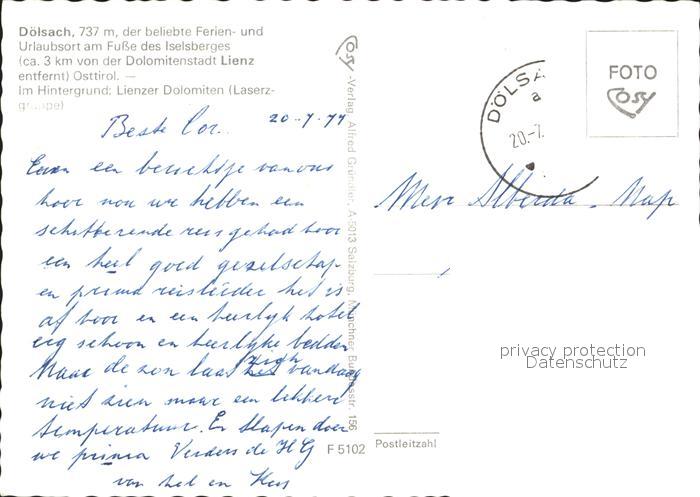 Dölsach, 737 m, der beliebte Ferien- und
Urlaubsort am Fuße des Iselsberges
(ca. 3 km von der Dolomitenstadt Lienz
entfernt) Osttirol. —
Im Hintergrund: Lienzer Dolomiten (Laserz-
gruppe)
Beste Cor. 20-7-77
Even een berichtje van ons
hoor nou we hebben een
schitterende reis gehad hoor
een heel goed gezelschap
en prima reisleider het is
af hoor en een heerlijk hotel
erg schoon en heerlijke bedden
Maar de zon laat zigh vandaag
niet zien maar een lekkere
temperatuur. En slapen doen
we prima Verders de H G
van hel en Kees
Cosy-Verlag Alfred Gründler, A 5013 Salzburg, Münchner Bundesstr. 156
F 5102
DÖLSA
a
20.-7.
FOTO
Cosy
Mevr Alberda - Nap
privacy protection
Datenschutz
Postleitzahl